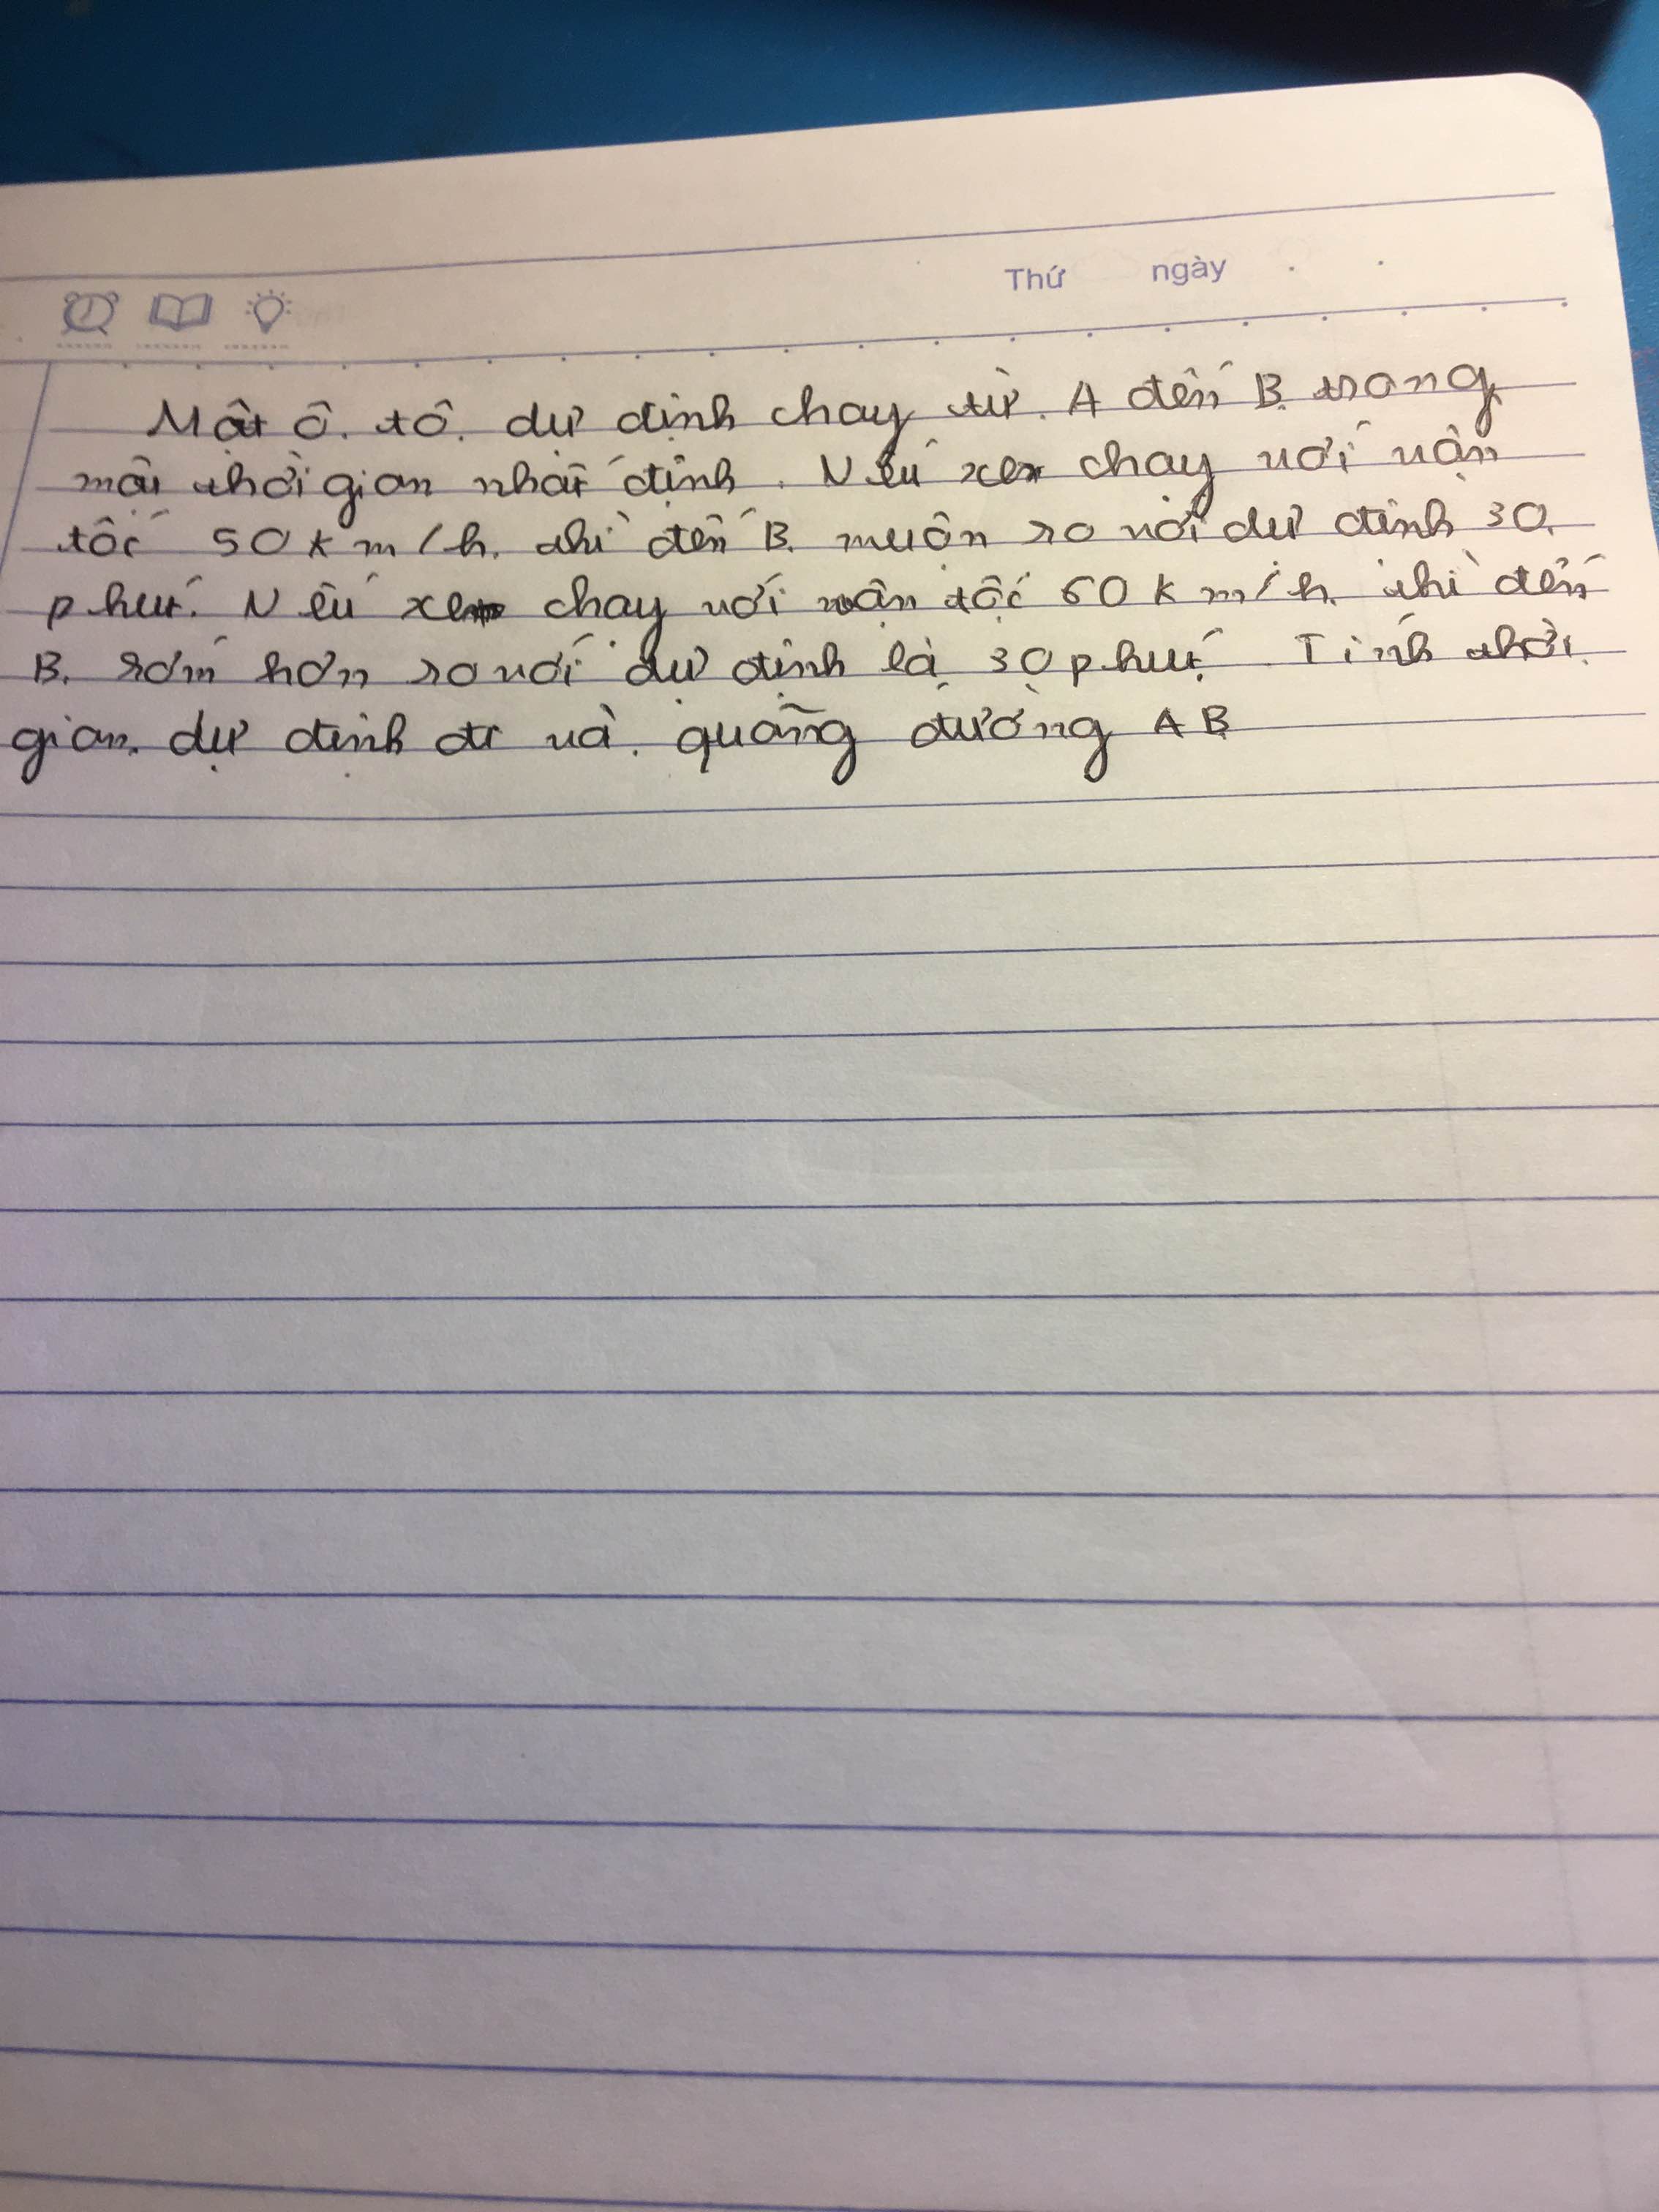 Thứ ngày
Một ô tô dự định chạy từ A đến B trong
một thời gian nhất định. Nếu xe chạy với vận
tốc 50 km/h thì đến B muộn so với dự định 30
phút. Nếu xe chạy với vận tốc 60 km/h thì đến
B sớm hơn so với dự định là 30 phút. Tính thời
gian dự định đi và quãng đường AB